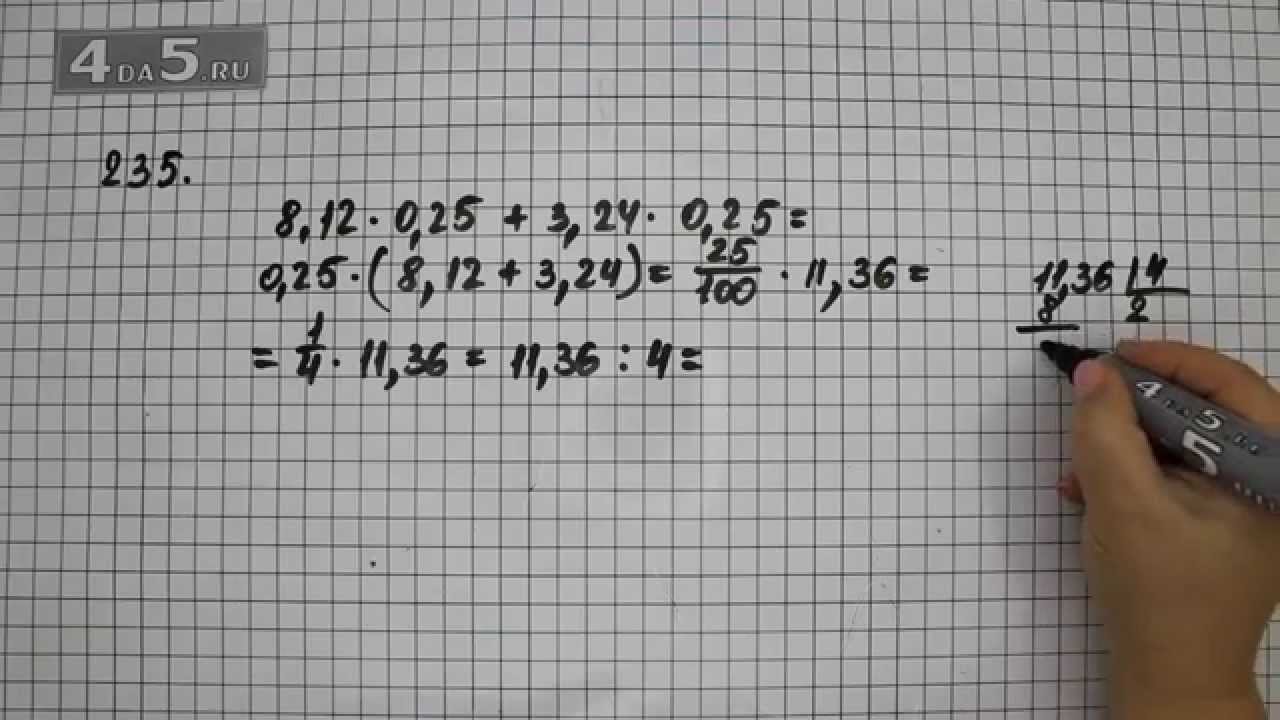 4DA5.RU
235.
8,12 · 0,25 + 3,24 · 0,25 =
0,25 · (8,12 + 3,24) = 25/100 · 11,36 =
= 1/4 · 11,36 = 11,36 : 4 =
11,36 | 4
8 2
4DA5.RU
5